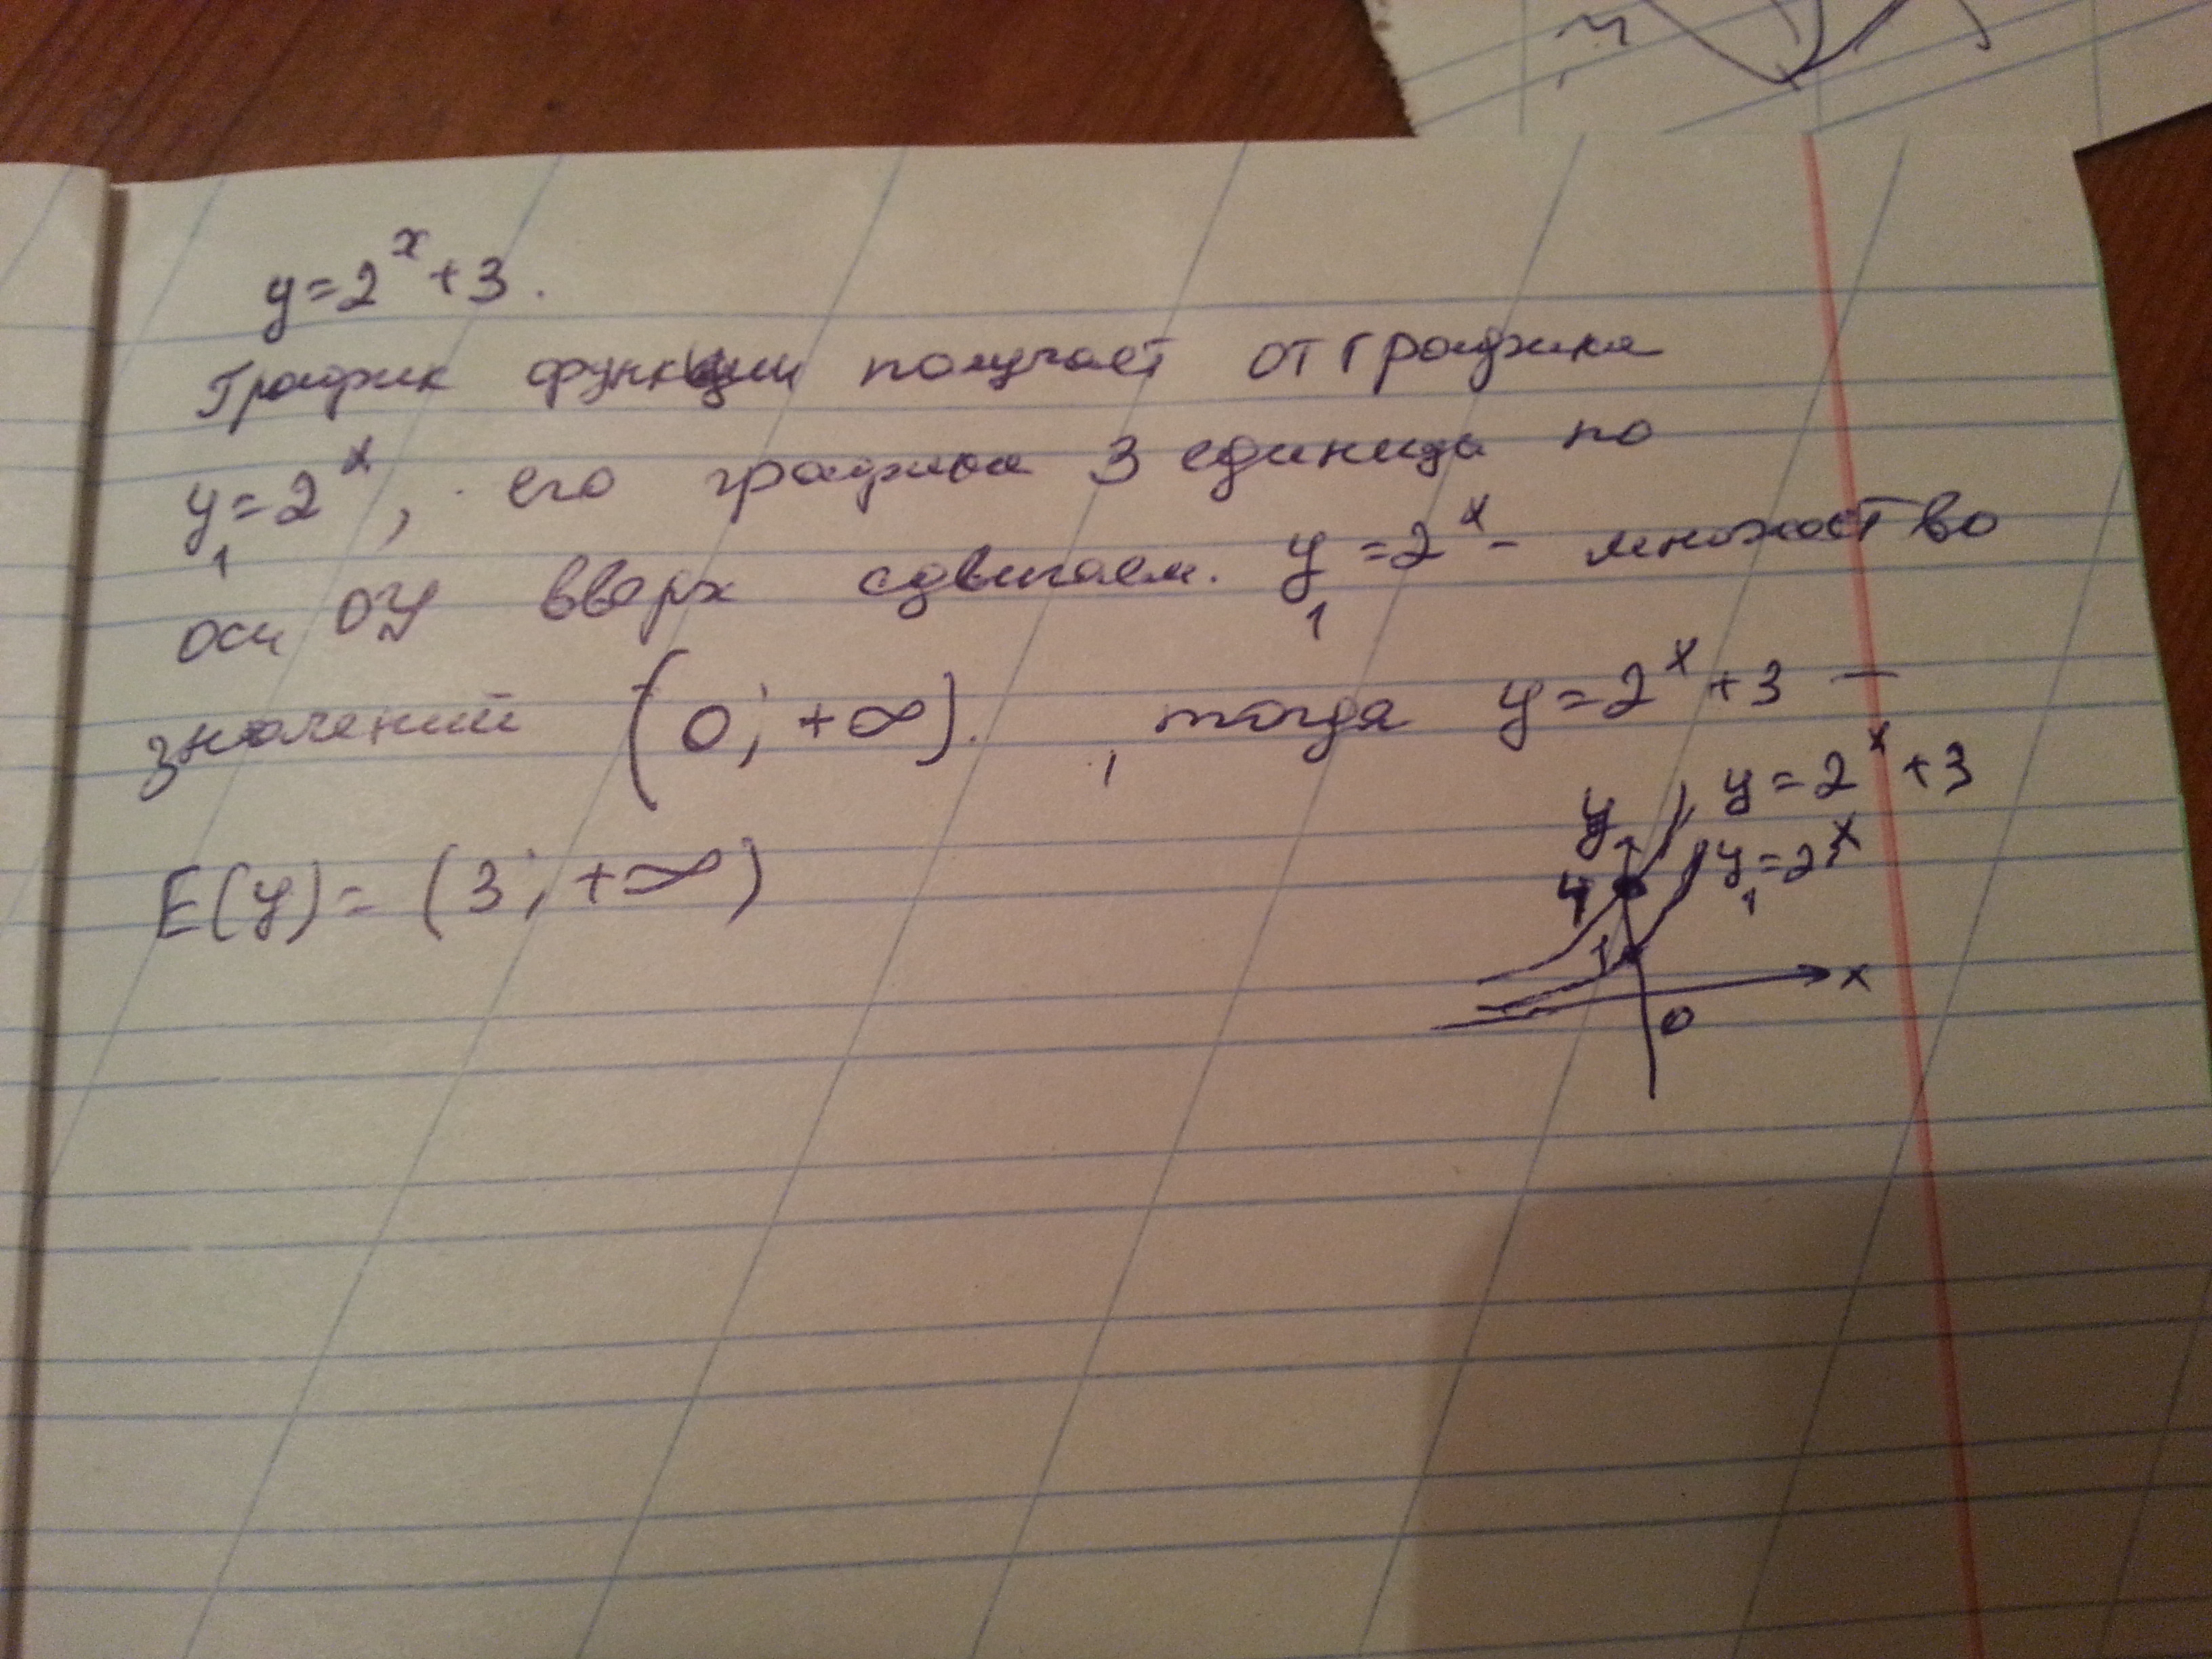 y=2^x+3.
График функции получает от графика
y₁=2^x, его график 3 единицы по
оси ОУ вверх сдвигаем. y₁=2^x - множество
значений (0; +∞). , тогда y=2^x+3 —
E(y)= (3; +∞)
y=2^x+3
y
y₁=2^x
4
1
x
0